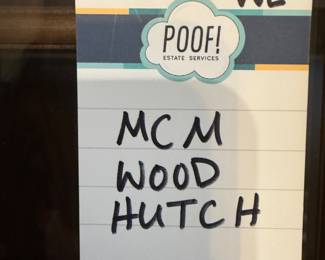 POOF!
ESTATE SERVICES
MCM
WOOD
HUTCH